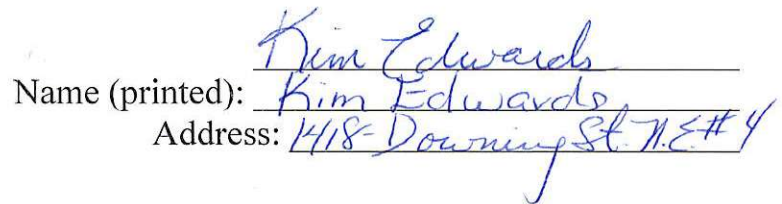 Kim Edwards
Name (printed): Kim Edwards
Address: 1418- Downing St. N.E. # 4